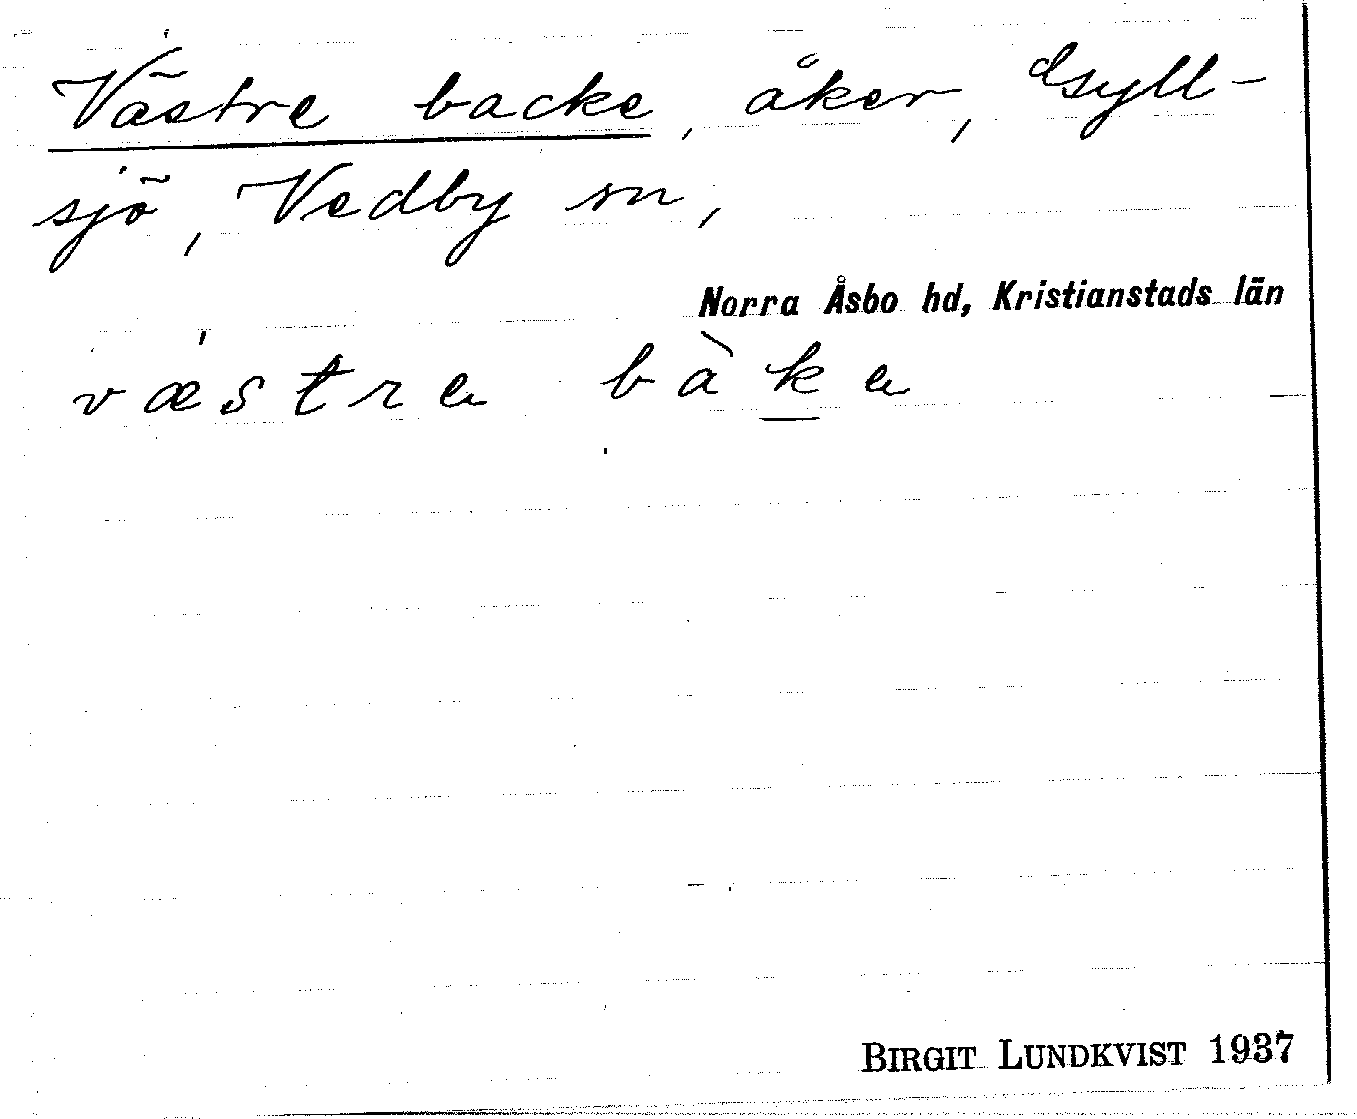 Västre backe, åker, Gyll-
sjö, Vedby sn,
Norra Åsbo hd, Kristianstads län
væstrɐ bàkɐ
BIRGIT LUNDKVIST 1937